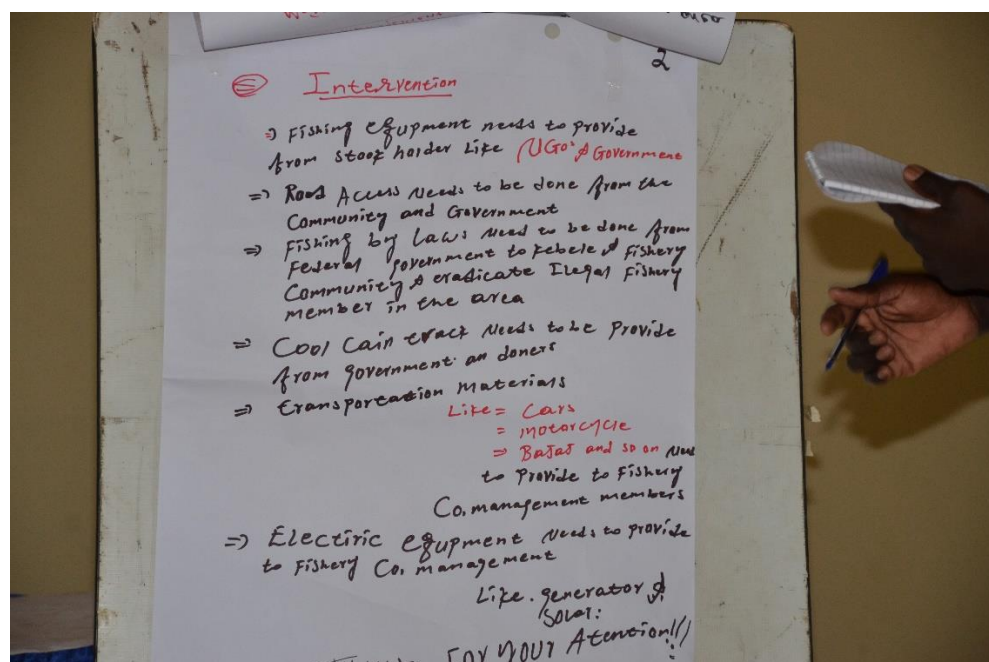 2
⑤ Intervention
=> Fishing egupment needs to provide
from stoek holder Like NGo's & Government
=> Road Access Needs to be done from the
Community and Government
=> Fishing by Laws Need to be done from
Federal government to kebele & Fishery
Community & eradicate Ilegal Fishery
member in the area
=> Cool Cain track Needs to be Provide
from government an doners
=> transportation materials
Like = Cars
= motorcycle
=> BaJaJ and so on Need
to Provide to Fishery
Co. management members
=> Electiric egupment Needs to provide
to Fishery Co. management
Like. generator &
Solar:
For YOUr Atention!!